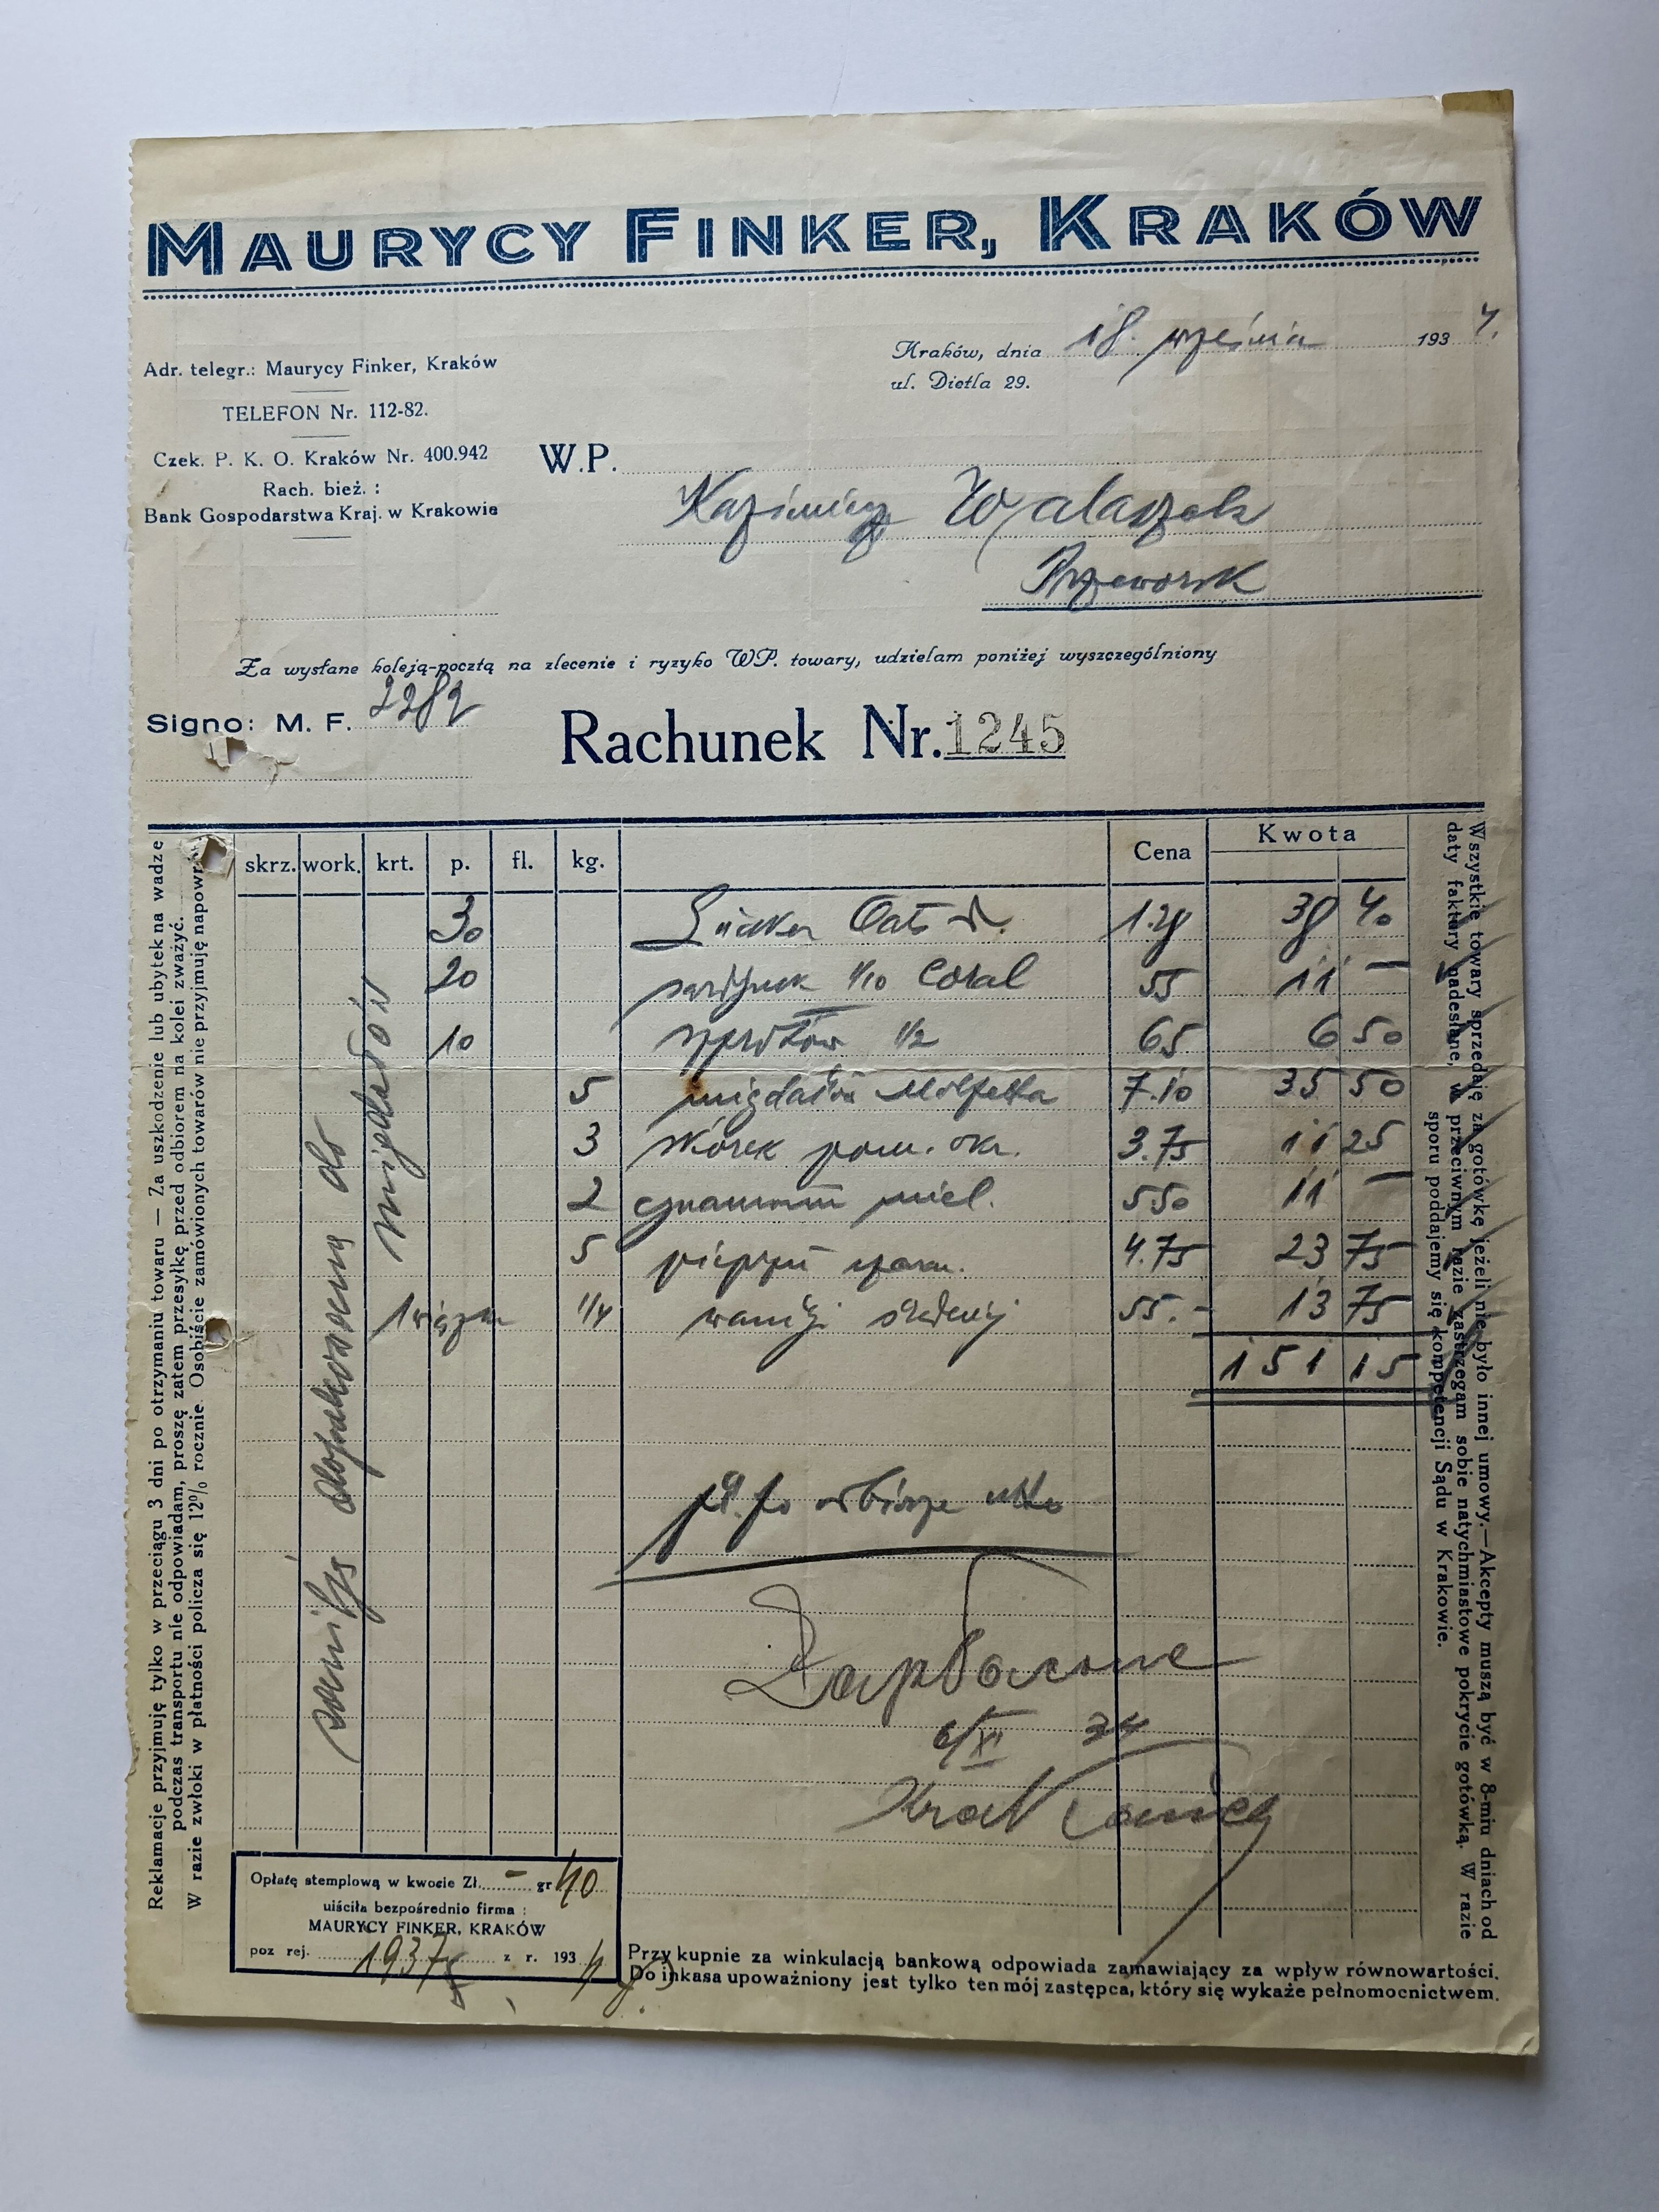 MAURYCY FINKER, KRAKÓW
Adr. telegr.: Maurycy Finker, Kraków
TELEFON Nr. 112-82.
Czek. P. K. O. Kraków Nr. 400.942
Rach. bież. :
Bank Gospodarstwa Kraj. w Krakowie
Kraków, dnia 18. września 1934.
ul. Dietla 29.
W.P.
Kazimierz Walaszek
Przeworsk
Za wysłane koleją-pocztą na zlecenie i ryzyko WP. towary, udzielam poniżej wyszczególniony
Signo: M. F. 2282
Rachunek Nr. 1245
skrz. work. krt. p. fl. kg. Cena Kwota
30 Oats 1.28 38 40
20 1/10 Coral 55 11 —
10 szprotów 1/2 65 6 50
5 migdałów Molfetta 7.10 35 50
3 skórek pom. 3.75 11 25
2 cynamonu miel. 5.50 11 —
5 pieprzu czarn. 4.75 23 75
1/4 wanilji 55.- 13 75
151 15
wanilję dopakowano do
migdałów
Zapłacone
6/XI 34
Opłatę stemplową w kwocie Zł. — gr 40
uiściła bezpośrednio firma :
MAURYCY FINKER, KRAKÓW
poz rej. 1937 z r. 1934
Przy kupnie za winkulacją bankową odpowiada zamawiający za wpływ równowartości.
Do inkasa upoważniony jest tylko ten mój zastępca, który się wykaże pełnomocnictwem.
Reklamacje przyjmuję tylko w przeciągu 3 dni po otrzymaniu towaru — Za uszkodzenie lub ubytek na wadze
podczas transportu nie odpowiadam, proszę zatem przesyłkę przed odbiorem na kolei zważyć.
W razie zwłoki w płatności policza się 12% rocznie. Osobiście zamówionych towarów nie przyjmuję napowr
Wszystkie towary sprzedaję za gotówkę jeżeli nie było innej umowy.—Akcepty muszą być w 8-miu dniach od
daty faktury nadesłane, w przeciwnym razie zastrzegam sobie natychmiastowe pokrycie gotówką. W razie
sporu poddajemy się kompetencji Sądu w Krakowie.